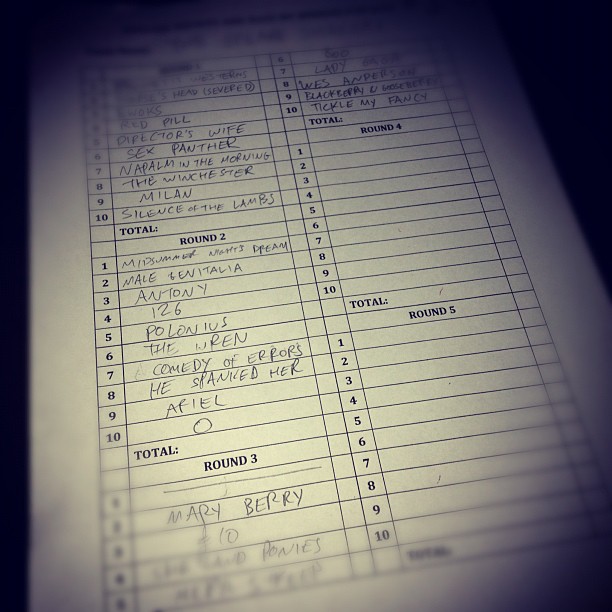 HEAD (SEVERED)
RED PILL
5 DIRECTOR'S WIFE
6 SEX PANTHER
7 NAPALM IN THE MORNING
8 THE WINCHESTER
9 MILAN
10 SILENCE OF THE LAMBS
TOTAL:
ROUND 2
1 MIDSUMMER NIGHT'S DREAM
2 MALE GENITALIA
3 ANTONY
4 126
5 POLONIUS
6 THE WREN
7 COMEDY OF ERRORS
8 HE SPANKED HER
9 ARIEL
10 O
TOTAL:
ROUND 3
1
2 MARY BERRY
3 10
4 AND PONIES
5
6
7 LADY
8 WES ANDERSON
9 BLACKBERRY & GOOSEBERRY
10 TICKLE MY FANCY
TOTAL:
ROUND 4
1
2
3
4
5
6
7
8
9
10
TOTAL:
ROUND 5
1
2
3
4
5
6
7
8
9
10
TOTAL: